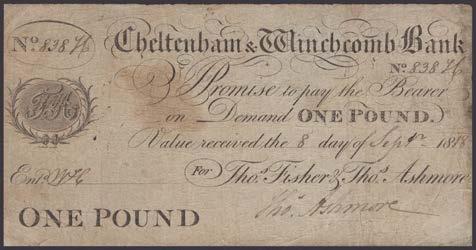 No. 83876 Cheltenham & Winchcomb Bank
No. 83876
I Promise to pay the Bearer
on Demand ONE POUND.
Value received the 8 day of Septr 1818
For Thos. Fisher & Thos. Ashmore
Thos. Ashmore
ONE POUND